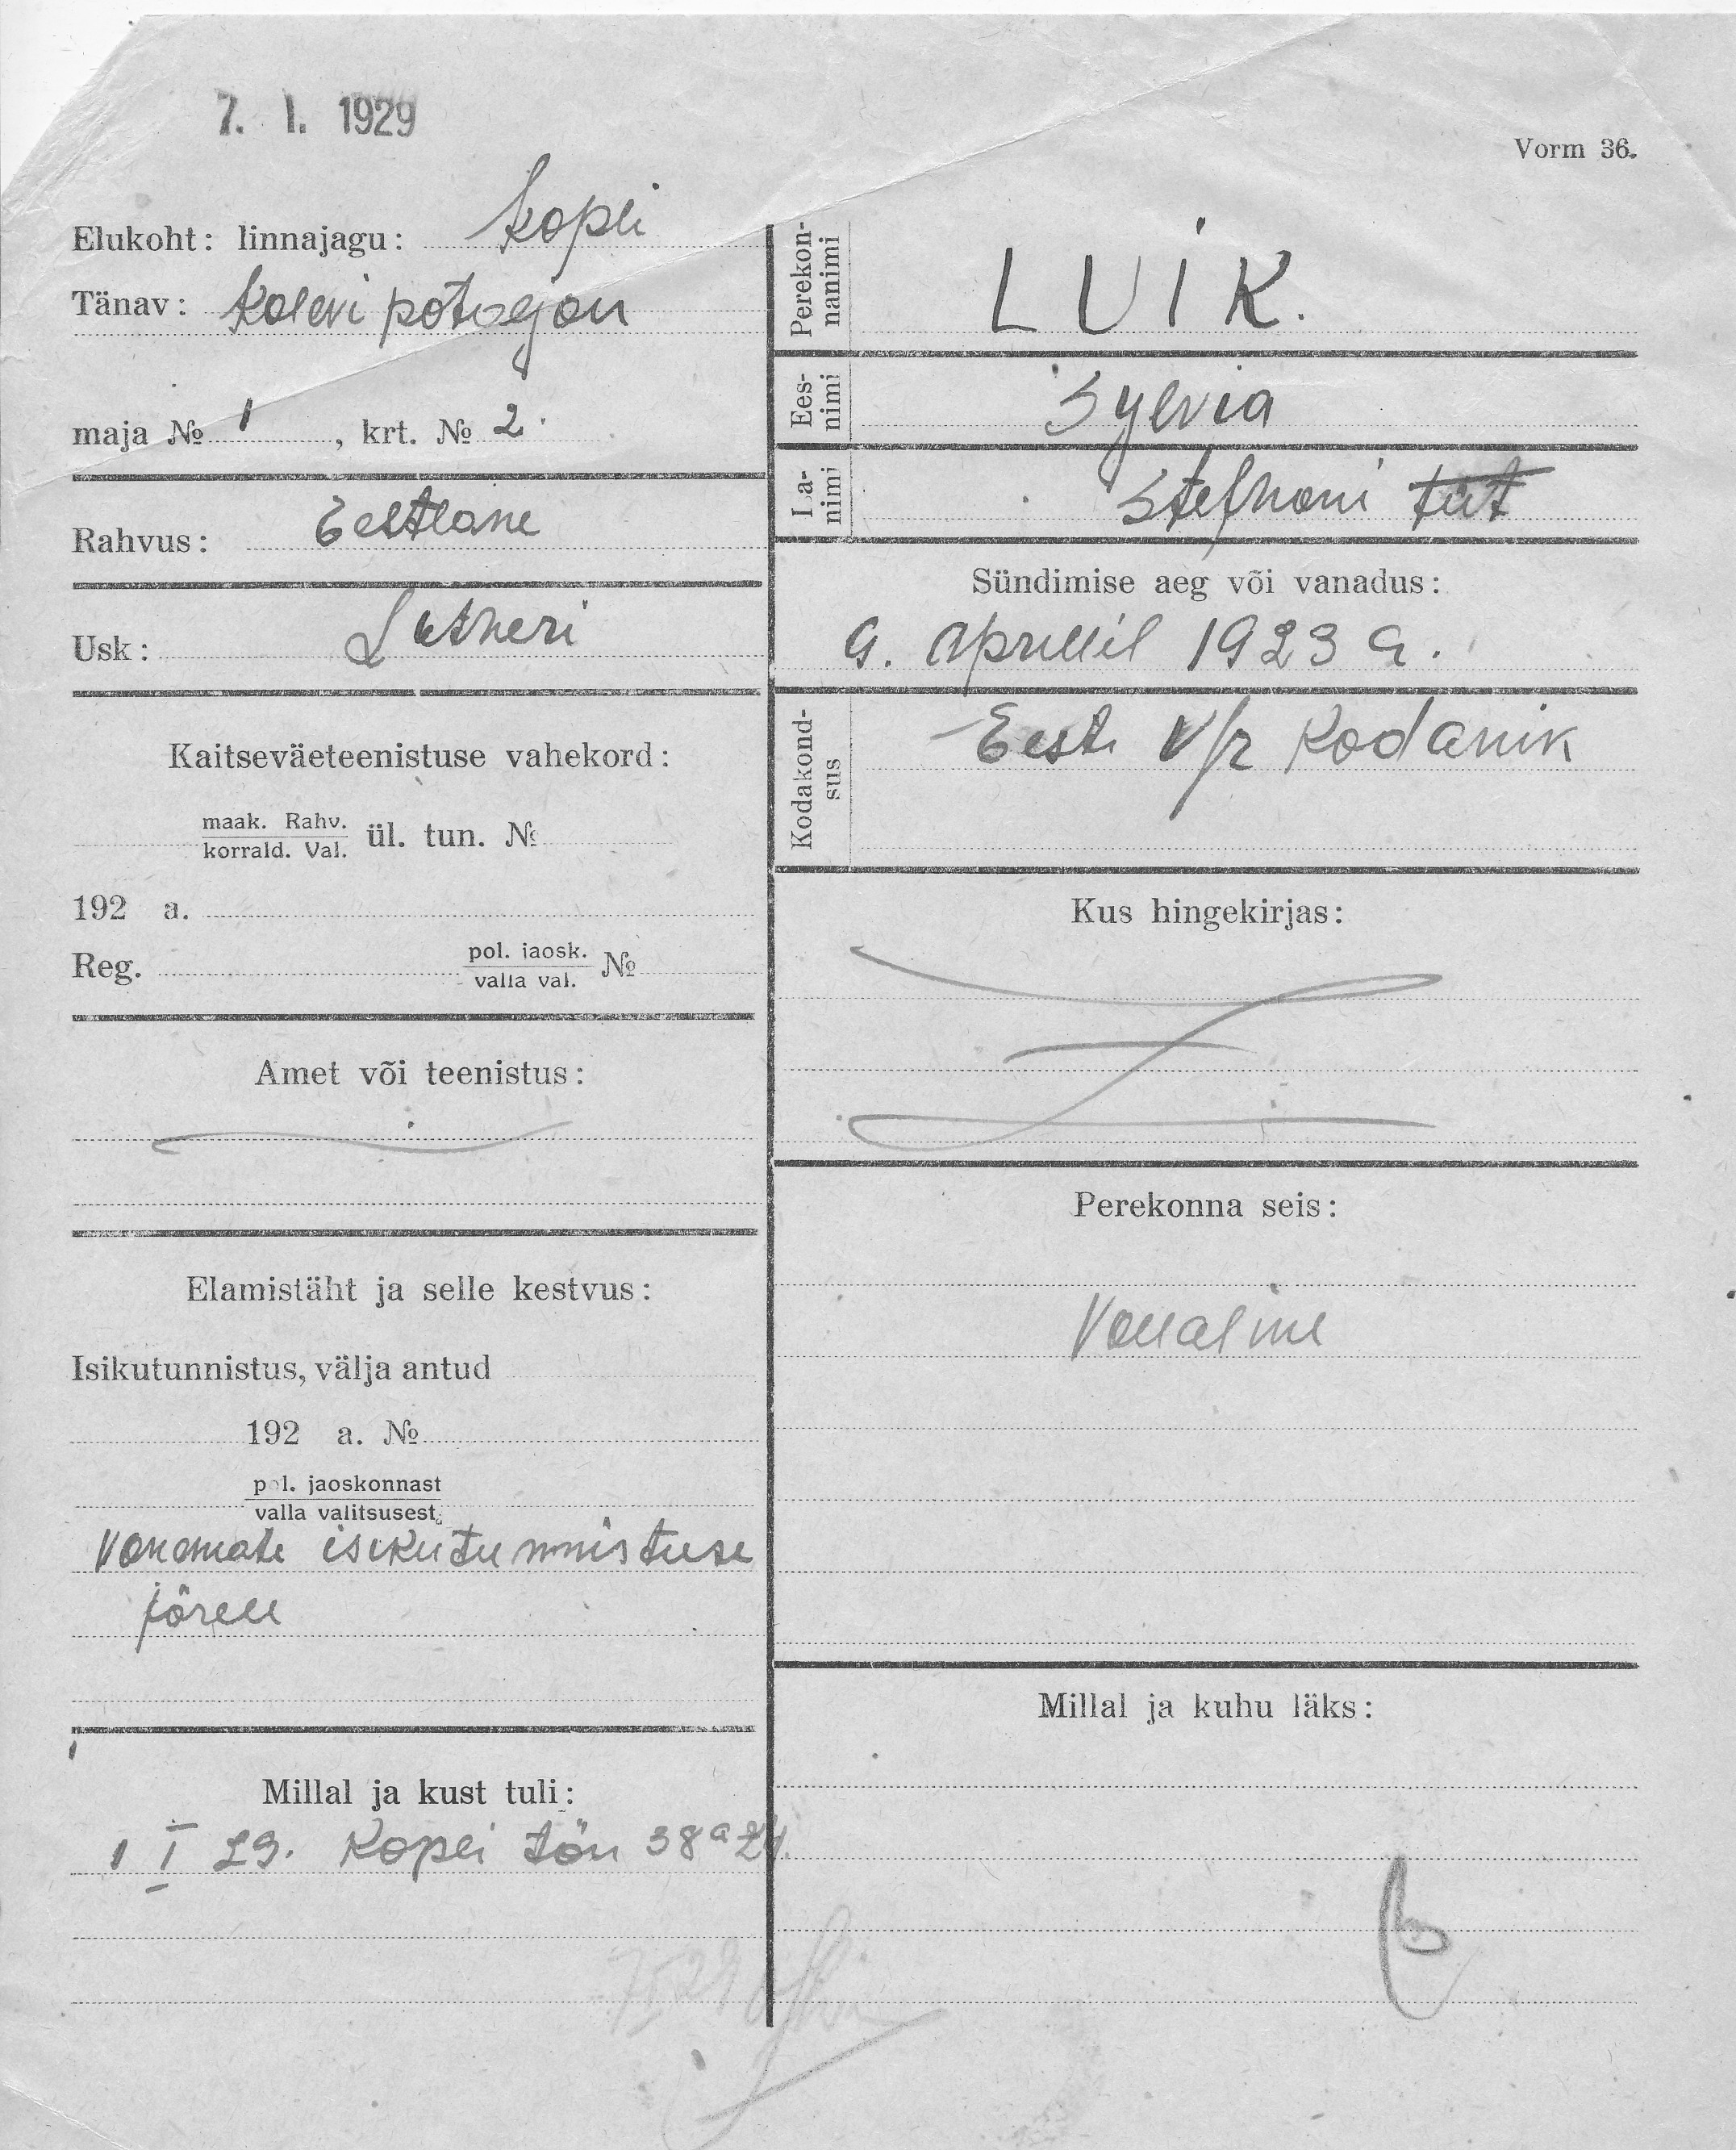 7. I. 1929
Vorm 36.
Elukoht: linnajagu: Kopli
Tänav: Kalevi
maja № 1, krt. № 2.
Rahvus: Eestlane
Usk: Lutheri
Kaitseväeteenistuse vahekord:
maak. Rahv.
korrald. Val. ül. tun. №
192 a.
Reg. pol. jaosk.
valla val. №
Amet või teenistus:
Elamistäht ja selle kestvus:
Isikutunnistus, välja antud
192 a. №
pol. jaoskonnast
valla valitsusest
Vanemate isikutunnistuse
järele
Millal ja kust tuli:
1 I 29. Kopli tän 38a
Perekon-
nanimi LUIK.
Ees-
nimi Sylvia
Isa-
nimi tüt
Sündimise aeg või vanadus:
9. aprillil 1923 a.
Kodakond-
sus Eesti v/r kodanik
Kus hingekirjas:
Perekonna seis:
Vallaline
Millal ja kuhu läks: